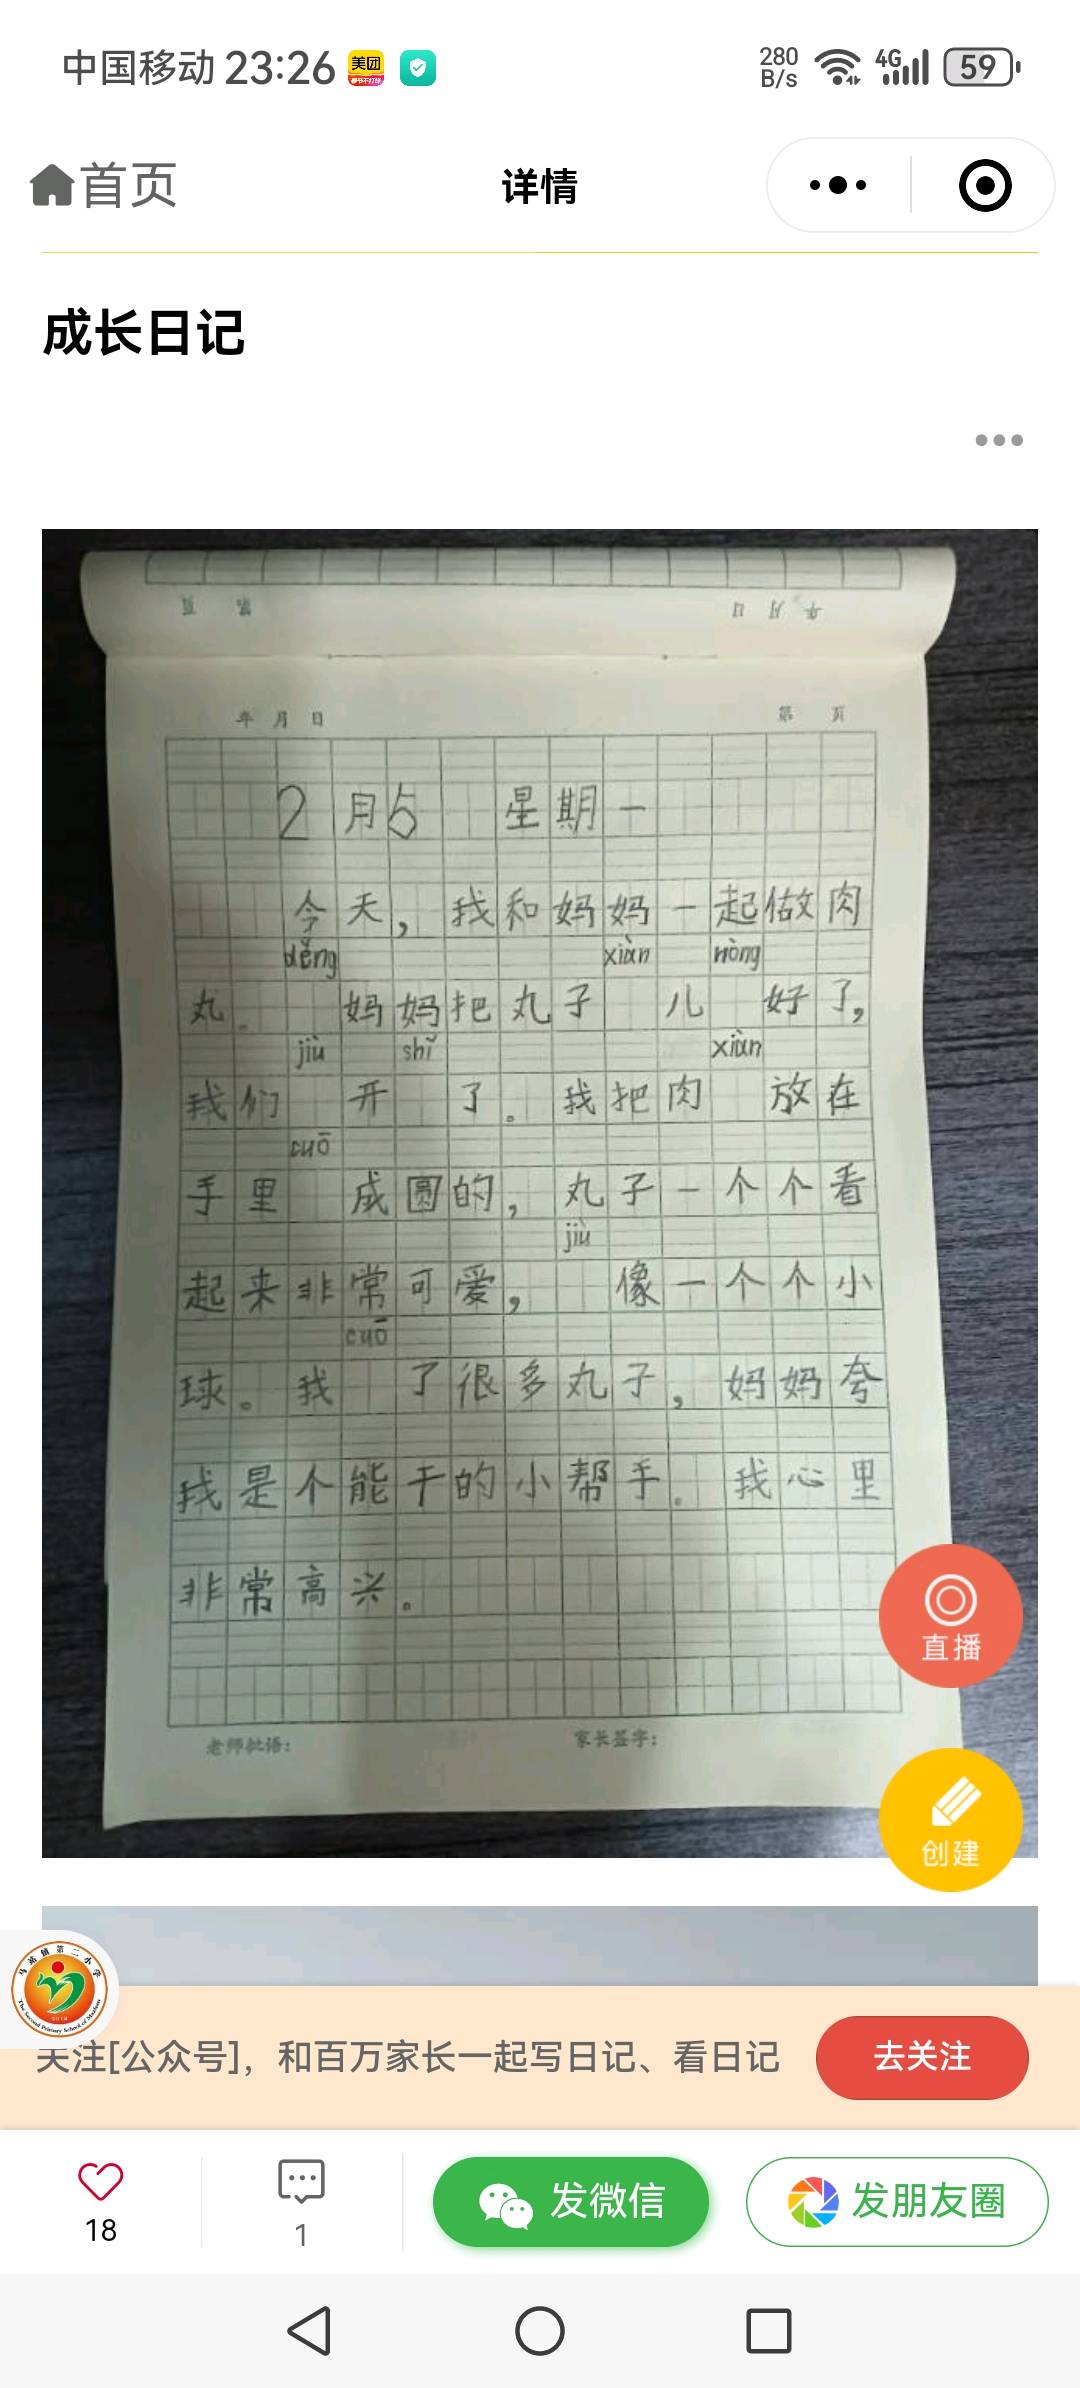 中国移动 23:26 美团 280 B/s 4G 59
首页 详情
成长日记
年 月 日 第 页
2月5 星期一
今天，我和妈妈一起做肉
děng xiàn nòng
丸。 妈妈把丸子 儿 好了，
jiù shǐ xiàn
我们 开 了。我把肉 放在
cuō
手里 成圆的，丸子一个个看
jiù
起来非常可爱， 像一个个小
cuō
球。我 了很多丸子，妈妈夸
我是个能干的小帮手。我心里
非常高兴。
老师批语： 家长签字：
直播
创建
马站镇第二小学
关注[公众号]，和百万家长一起写日记、看日记 去关注
18 1 发微信 发朋友圈